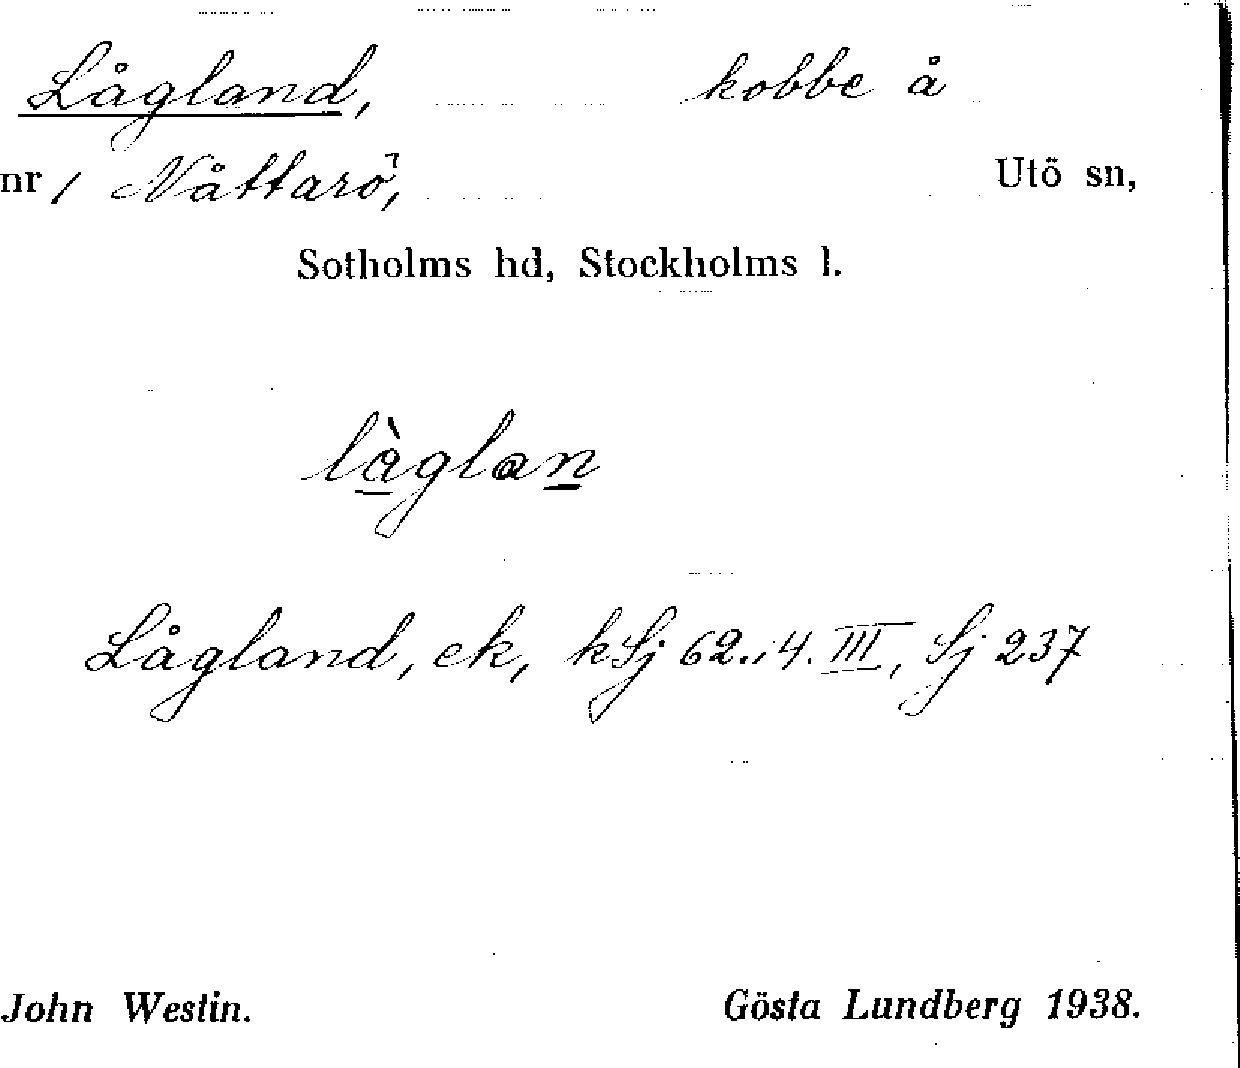 Lågland, kobbe å
nr 1 Nåttarö, Utö sn,
Sotholms hd, Stockholms l.
làglan
Lågland, ek, kSj 62. i4. III, Sj 237
John Westin. Gösta Lundberg 1938.